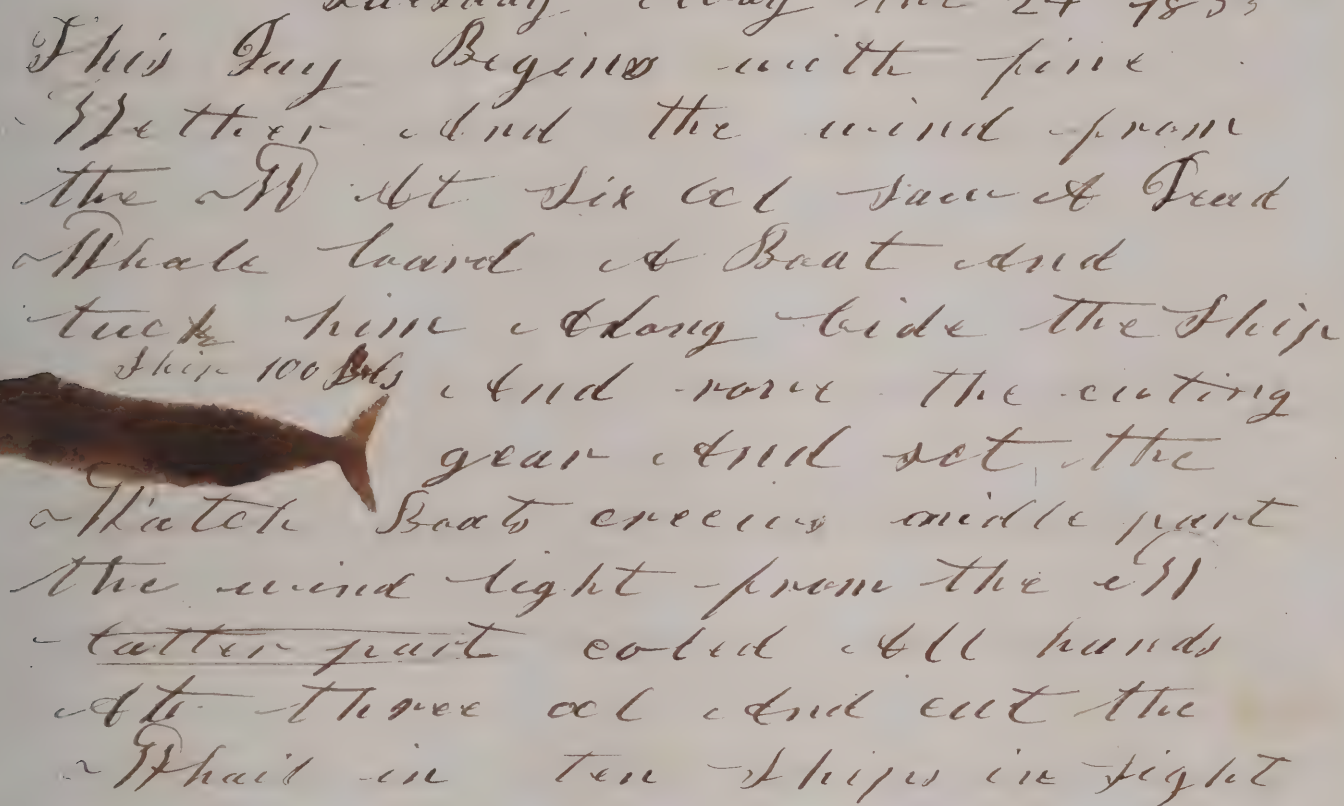 Tuesday May the 24 1853
This Day Begins with fine
Wether And the wind from
the W At Six ocl Saw A Dead
Whale loard A Boat And
tuck him Along Side the Ship
Ship 100 Bbls And rove the cuting
gear And set the
Watch Boats creews midle part
the wind light from the W
latter part coled All hands
At three ocl And cut the
Whail in ten Ships in sight